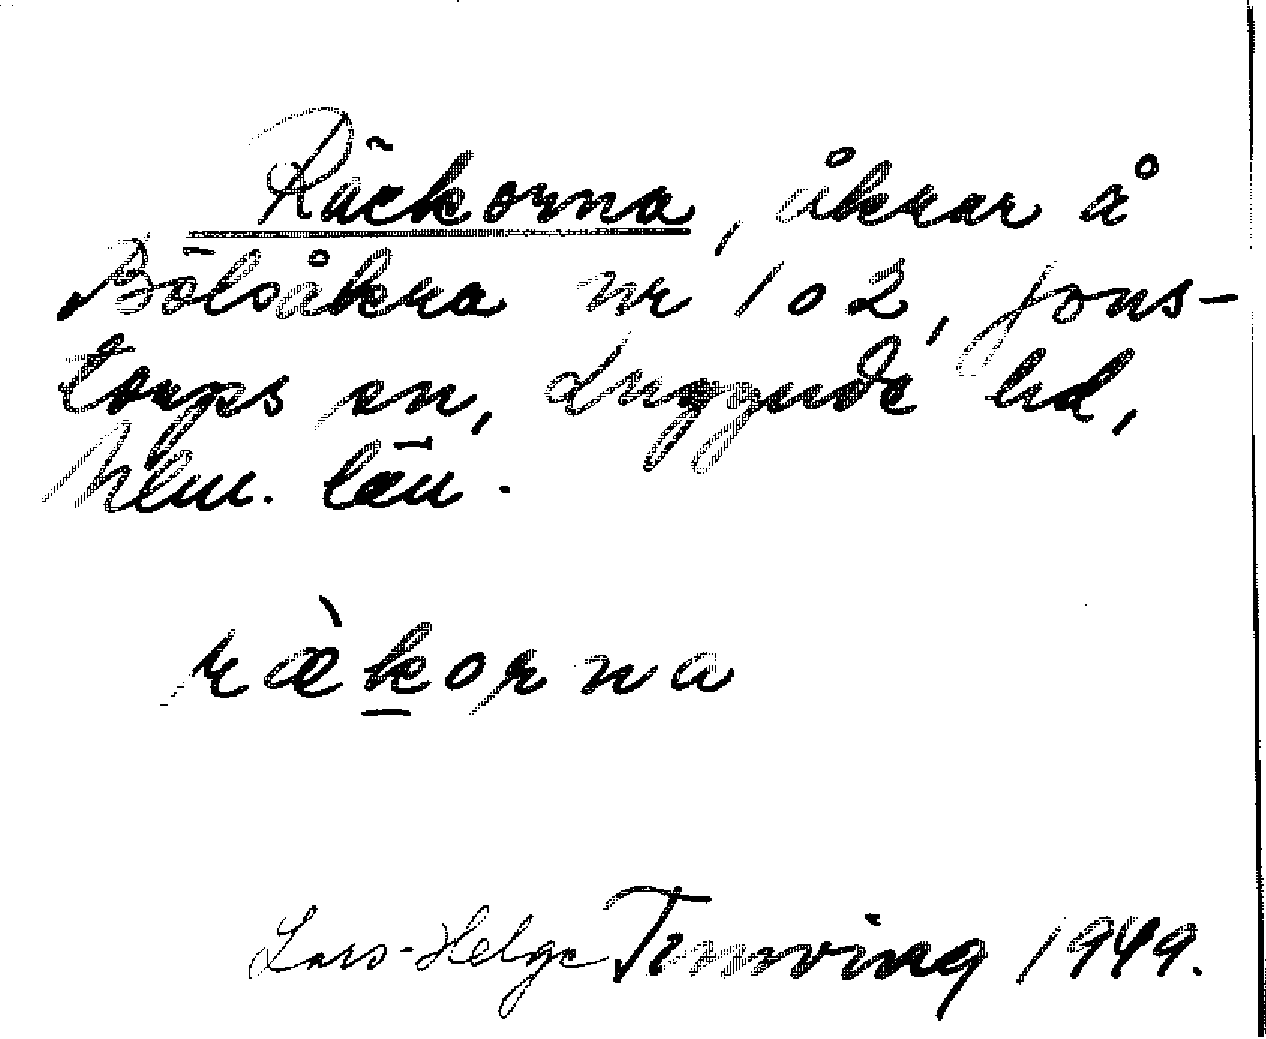 Räckorna, åkrar å
Bölsåkra nr 102, Jons-
torps sn, Luggude hd,
Mlm. län.
ræ̀k̲orna
Lars-Helge 1949.